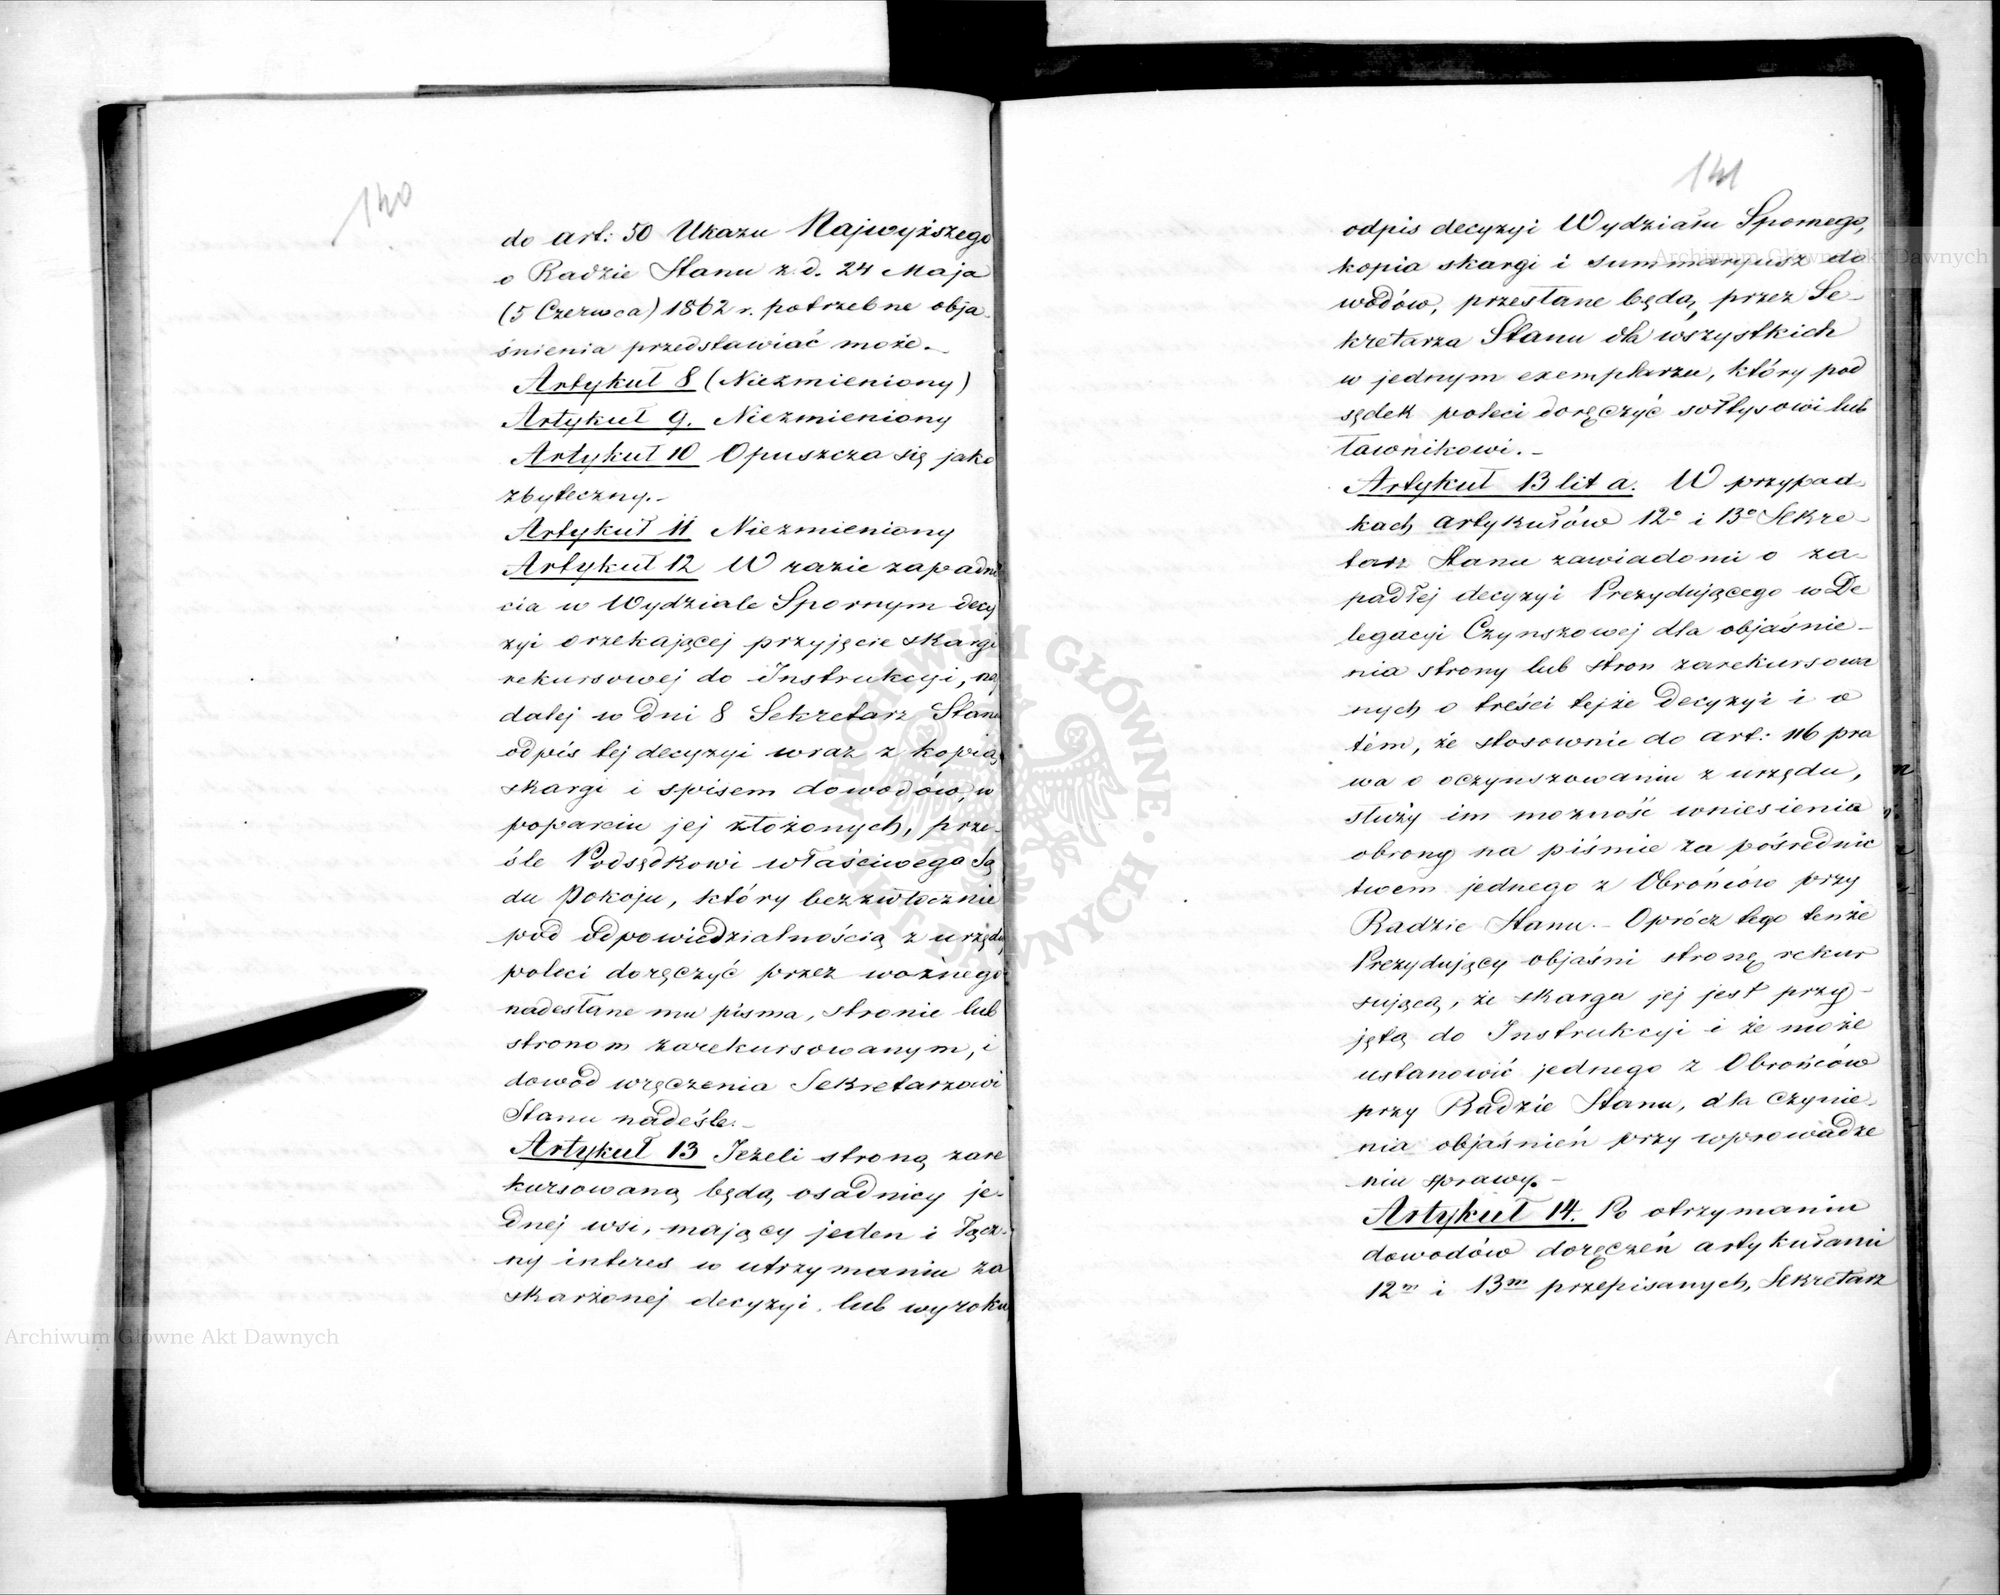 140
do art: 50 Ukazu Najwyższego
o Radzie Stanu z d. 24 Maja
(5 Czerwca) 1862 r. potrzebne obja-
śnienia przedstawiać może.-
Artykuł 8 (Niezmieniony)
Artykuł 9. Niezmieniony
Artykuł 10 Opuszcza się jako
zbyteczny.-
Artykuł 11 Niezmieniony
Artykuł 12 W razie zapadnię
cia w Wydziale Spornym decy
zyi orzekającej przyjęcie skargi
rekursowej do Instrukcyi, naj
dalej w dni 8 Sekretarz Stanu
odpis tej decyzyi wraz z kopią
skargi i spisem dowodów, w
poparciu jej złożonych, prze-
śle Podsędkowi właściwego Są
du Pokoju, który bezzwłocznie
pod odpowiedzialnością z urzędu
poleci doręczyć przez woźnego
nadesłane mu pisma, stronie lub
stronom zarekursowanym, i
dowód wręczenia Sekretarzowi
Stanu nadeśle.-
Artykuł 13 Jeżeli stroną zare
kursowaną będą osadnicy je-
dnej wsi, mający jeden i łącz-
ny interes w utrzymaniu za
skarżonej decyzyi, lub wyroku
141
odpis decyzyi Wydziału Spornego,
kopia skargi i summaryusz do
wodów, przesłane będą, przez Se-
kretarza Stanu dla wszystkich
w jednym exemplarzu, który pod
sędek poleci doręczyć sołtysowi lub
ławnikowi.-
Artykuł 13 lit a. W przypad-
kach artykułów 12o i 13o Sekre-
tarz Stanu zawiadomi o za-
padłej decyzyi Prezydującego w De
legacyi Czynszowej dla objaśnie-
nia strony lub stron zarekursowa
nych o treści tejże decyzyi i o
tém, że stosownie do art: 116 pra
wa o oczynszowaniu z urzędu,
służy im możność wniesienia
obrony na piśmie za pośrednic
twem jednego z Obrońców przy
Radzie Stanu.- Oprócz tego tenże
Prezydujący objaśni stronę rekur
sującą, że skarga jej jest przy-
jętą do Instrukcyi i że może
ustanowić jednego z Obrońców
przy Radzie Stanu, dla czynie-
nia objaśnień przy wprowadze
niu sprawy.-
Artykuł 14. Po otrzymaniu
dowodów doręczeń artykułami
12m i 13m przepisanych, Sekretarz
Archiwum Główne Akt Dawnych
Archiwum Główne Akt Dawnych
ARCHIWUM GŁÓWNE AKT DAWNYCH